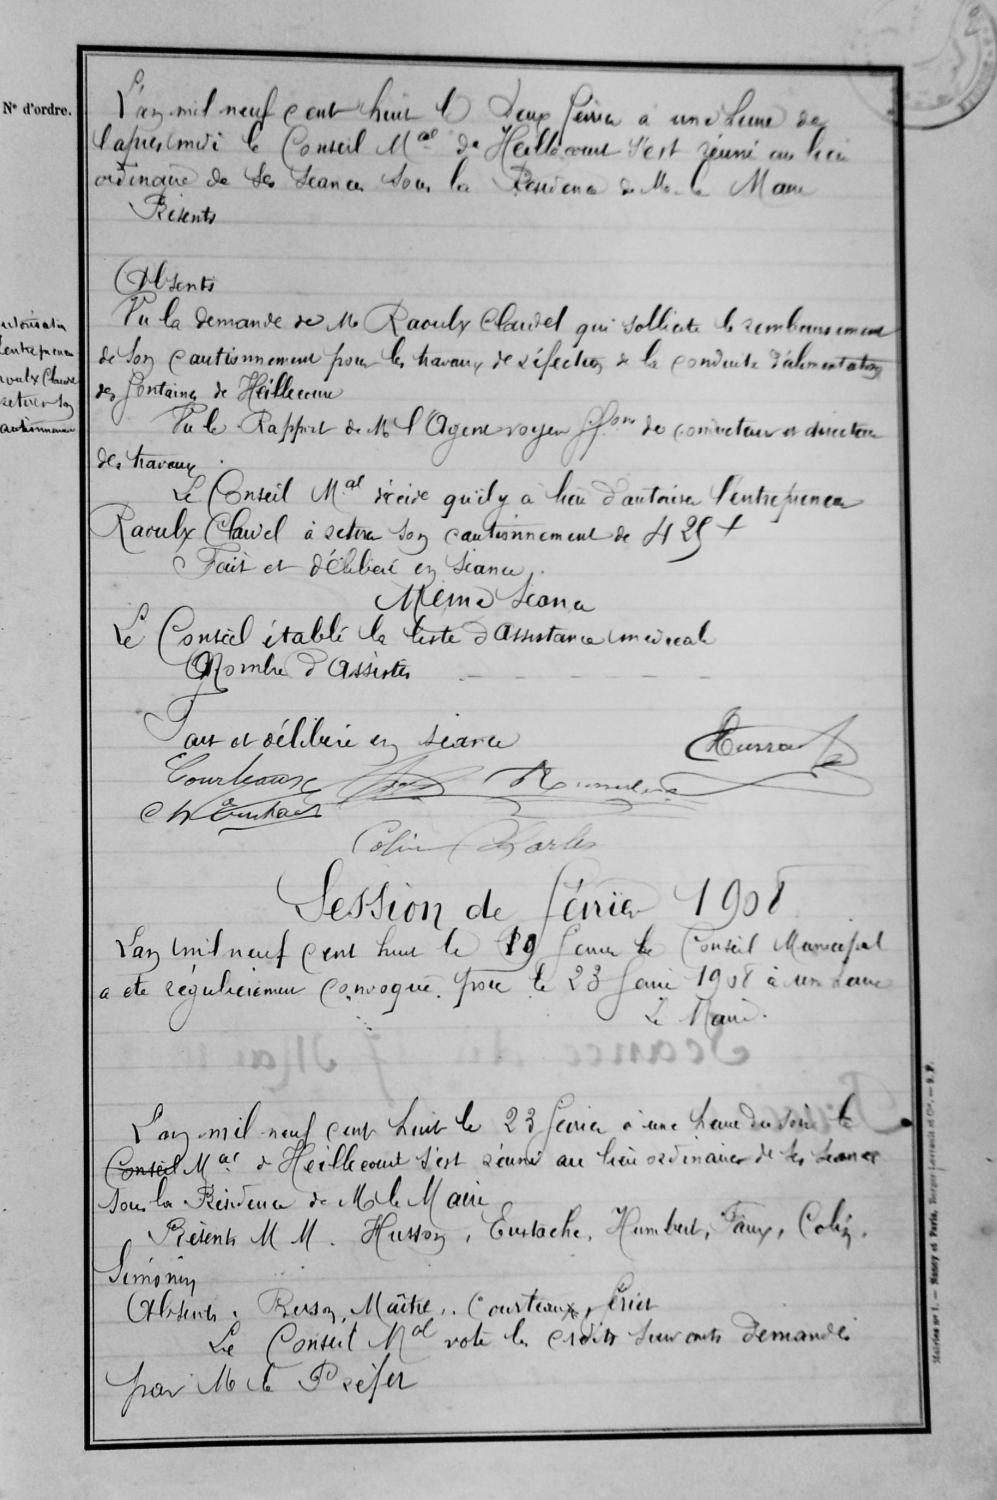 N° d'ordre.
L'an mil neuf cent huit le deux février à une heure de
l'après midi le Conseil Mal de Heillecourt s'est réuni au lieu
ordinaire de ses séances sous la Présidence de M. le Maire
Présents
Absents
Vu la demande de M Raoulx Claudel qui sollicite le remboursement
de son cautionnement pour les travaux de réfection de la conduite d'alimentation
des fontaines de Heillecourt
Vu le Rapport de M l'Agent voyer ffons de conducteur et directeur
des travaux.
Le Conseil Mal décide qu'il y a lieu d'autoriser l'entrepreneur
Raoulx Claudel à retirer son cautionnement de 425 f
Fait et délibéré en séance.
Même séance
Le Conseil établi la liste d'assistance médicale
Nombre d'assistés
Fait et délibéré en séance
Courteaux
Ch Eustache
Colin Charles
Session de février 1908
L'an mil neuf cent huit le 19 février le Conseil Municipal
a été régulièrement convoqué pour le 23 février 1908 à une heure
Le Maire.
L'an mil neuf cent huit le 23 février à une heure du soir le
Conseil Mal d'Heillecourt s'est réuni au lieu ordinaires de ses séances
sous la Présidence de M le Maire
Présents M M. Husson, Eustache, Humbert, Faux, Colin,
Simonin
Absents. Maître, Courteaux,
Le Conseil Mal vote les crédits suivants demandés
par M le Préfet
autorisation
l'entrepreneur
Raoulx Claudel
retirer son
cautionnement
Mairies n° 1. — Nancy et Paris, Berger-Levrault et Cie. — S. P.